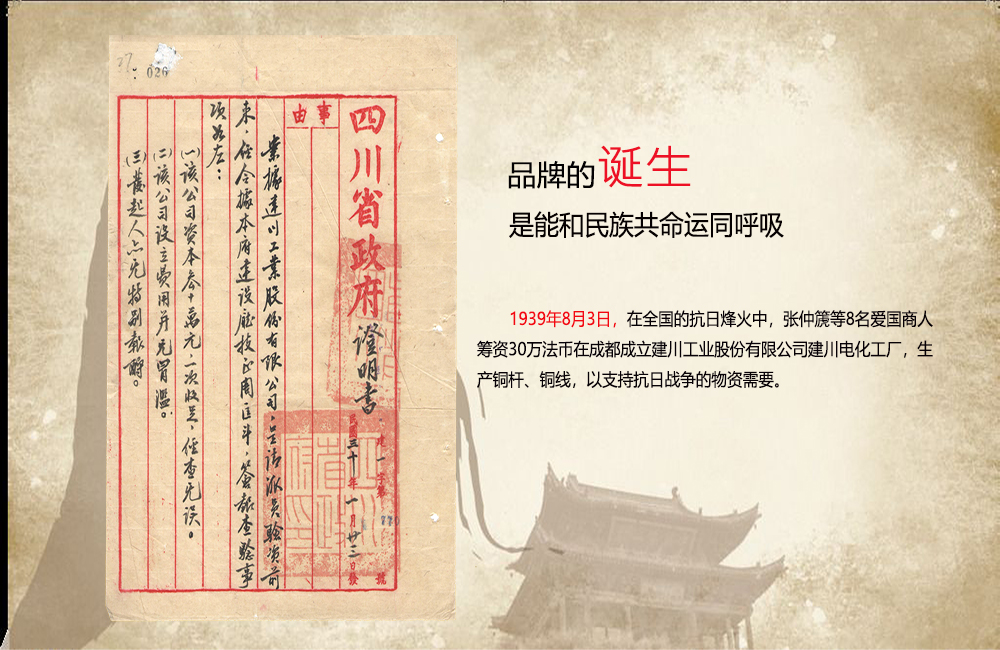 026
四川省政府證明書
建一字第 號
民國三十年一月廿三日發
事由
業據建川工業股份有限公司呈請派員驗資前
來,
項如左:
(一)該公司資本叁十萬元一次收足,經查无误。
(二)該公司設立費用并无冒濫。
(三)發起人亦无特别報酬。
品牌的诞生
是能和民族共命运同呼吸
1939年8月3日,在全国的抗日烽火中,张仲篪等8名爱国商人
筹资30万法币在成都成立建川工业股份有限公司建川电化工厂,生
产铜杆、铜线,以支持抗日战争的物资需要。